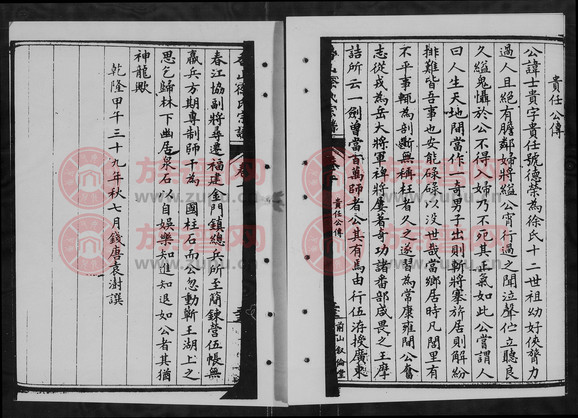 貴任公傳
公諱士貴字貴任號德榮為徐氏十二世祖幼好俠膂力
過人且絕有膽鄰婦將縊公宵行過之聞泣聲佇立聽良
久縊鬼懾於公不得入婦乃不死其正氣如此公嘗謂人
曰人生天地間當作一奇男子出則斬將搴旂居則解紛
排難皆吾事也安能碌碌以沒世哉當鄉居時凡閭里有
不平事輒為剖斷無稱枉者久之遂習為常康雍間公奮
志從戎為岳大將軍裨將屢著奇功諸番部咸畏之王摩
詰所云一劍曾當百萬師者公其有焉由行伍洊擢廣東
貴任公傳
前山敘倫堂
春江協副將尋遷福建金門鎮總兵所至簡鍊營伍帳無
羸兵方期專制師干為 國柱石而公忽動蘄王湖上之
思乞歸林下幽居泉石以自娛樂知進知退如公者其猶
神龍歟
乾隆甲午三十九年秋七月錢唐袁澍譔
族譜網